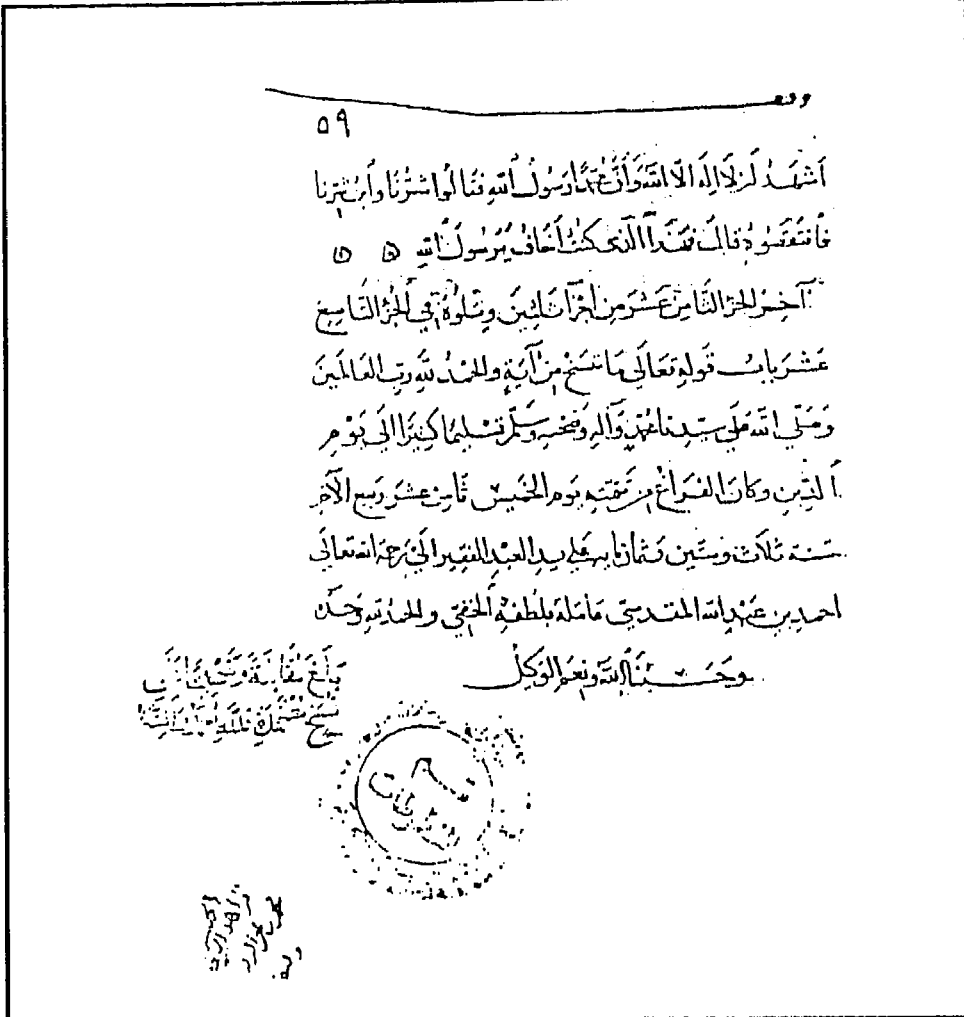 وقف
٥٩
أشهد أن لا إله إلا الله وأن محمدا رسول الله فقالوا شرنا وابن شرنا
فانتقصوه قال فهذا الذي كنت أخاف يرسول الله
آخر الجزء الثامن عشر من أجزاء ثلثين ويتلوه في الجزء التاسع
عشر باب قوله تعالى ما ننسخ من آية والحمد لله رب العالمين
وصلى الله على سيدنا محمد وآله وصحبه وسلم تسليما كثيرا إلى يوم
الدين وكان الفراغ من يوم الخميس ثامن عشر ربيع الآخر
سنة ثلاث وستين وثمانمايه على يد العبد الفقير إلى رحمة الله تعالى
احمد بن عبد الله المقدسي عامله بلطفه الخفي والحمد لله وحده
وحسبنا الله ونعم الوكيل
بلغ مقابلة